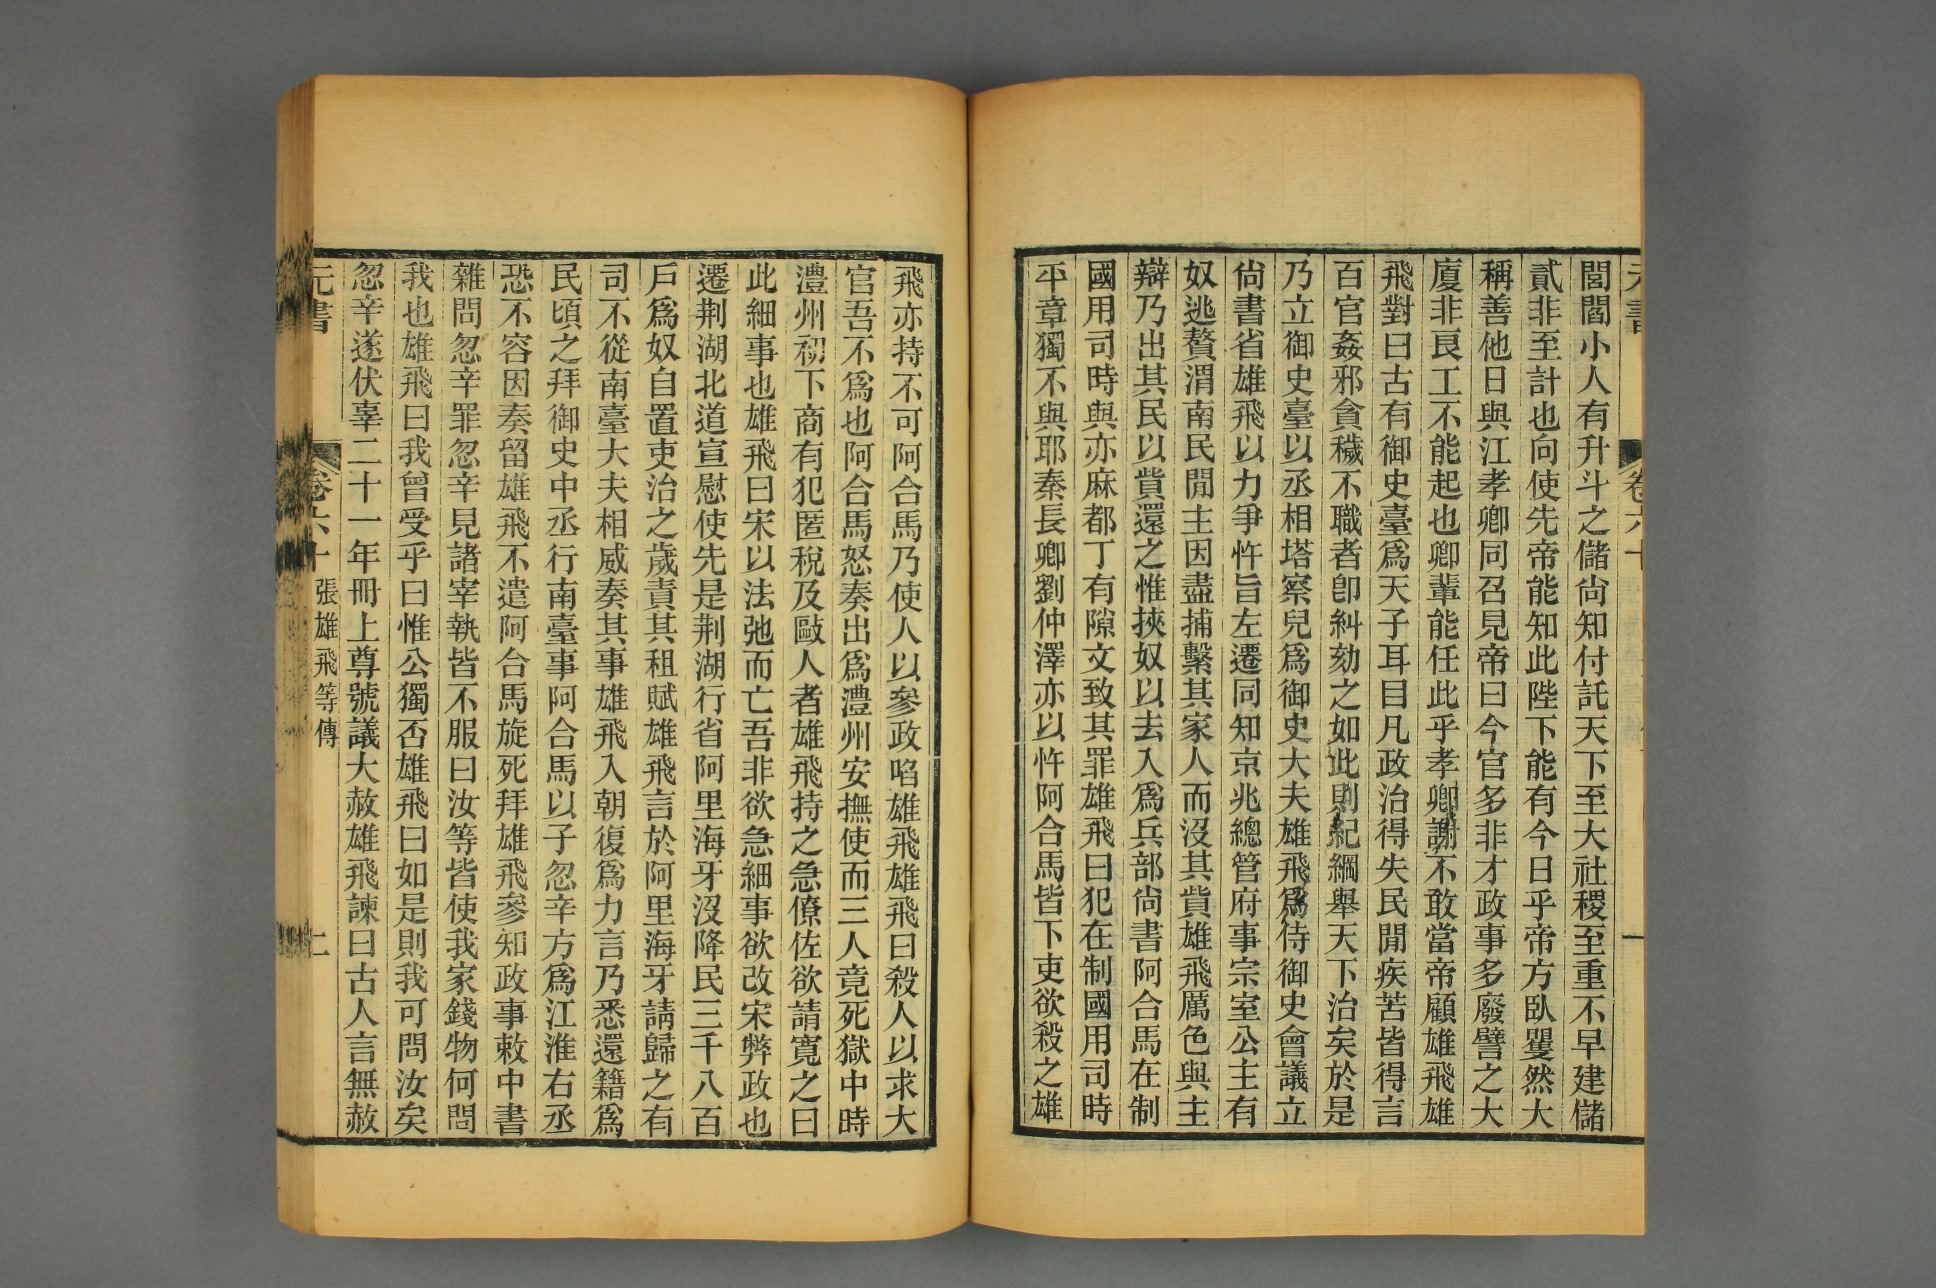 閭閻小人有升斗之儲尙知付託天下至大社稷至重不早建儲
貳非至計也向使先帝能知此陛下能有今日乎帝方臥矍然大
稱善他日與江孝卿同召見帝曰今官多非才政事多廢譬之大
廈非良工不能起也卿輩能任此乎孝卿謝不敢當帝顧雄飛雄
飛對曰古有御史臺爲天子耳目凡政治得失民閒疾苦皆得言
百官姦邪貪穢不職者卽糾劾之如此則紀綱舉天下治矣於是
乃立御史臺以丞相塔察兒爲御史大夫雄飛爲侍御史會議立
尙書省雄飛以力爭忤旨左遷同知京兆總管府事宗室公主有
奴逃贅渭南民閒主因盡捕繫其家人而沒其貲雄飛厲色與主
辯乃出其民以貲還之惟挾奴以去入爲兵部尙書阿合馬在制
國用司時與亦麻都丁有隙文致其罪雄飛曰犯在制國用司時
平章獨不與耶秦長卿劉仲澤亦以忤阿合馬皆下吏欲殺之雄
元書 卷六十 一
飛亦持不可阿合馬乃使人以參政啗雄飛雄飛曰殺人以求大
官吾不爲也阿合馬怒奏出爲澧州安撫使而三人竟死獄中時
澧州初下商有犯匿稅及敺人者雄飛持之急僚佐欲請寬之曰
此細事也雄飛曰宋以法弛而亡吾非欲急細事欲改宋弊政也
遷荆湖北道宣慰使先是荆湖行省阿里海牙沒降民三千八百
戶爲奴自置吏治之歲責其租賦雄飛言於阿里海牙請歸之有
司不從南臺大夫相威奏其事雄飛入朝復爲力言乃悉還籍爲
民頃之拜御史中丞行南臺事阿合馬以子忽辛方爲江淮右丞
恐不容因奏留雄飛不遣阿合馬旋死拜雄飛參知政事敕中書
雜問忽辛罪忽辛見諸宰執皆不服曰汝等皆使我家錢物何問
我也雄飛曰我曾受乎曰惟公獨否雄飛曰如是則我可問汝矣
忽辛遂伏辜二十一年冊上尊號議大赦雄飛諫曰古人言無赦
元書 卷六十 張雄飛等傳 二